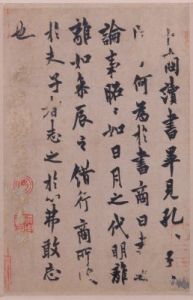 卜商讀書畢見孔々子々
何為於書商曰書之
論事昭々如日月之代明離
離如參辰之錯行商所受
於夫子者志之於心弗敢忘
也